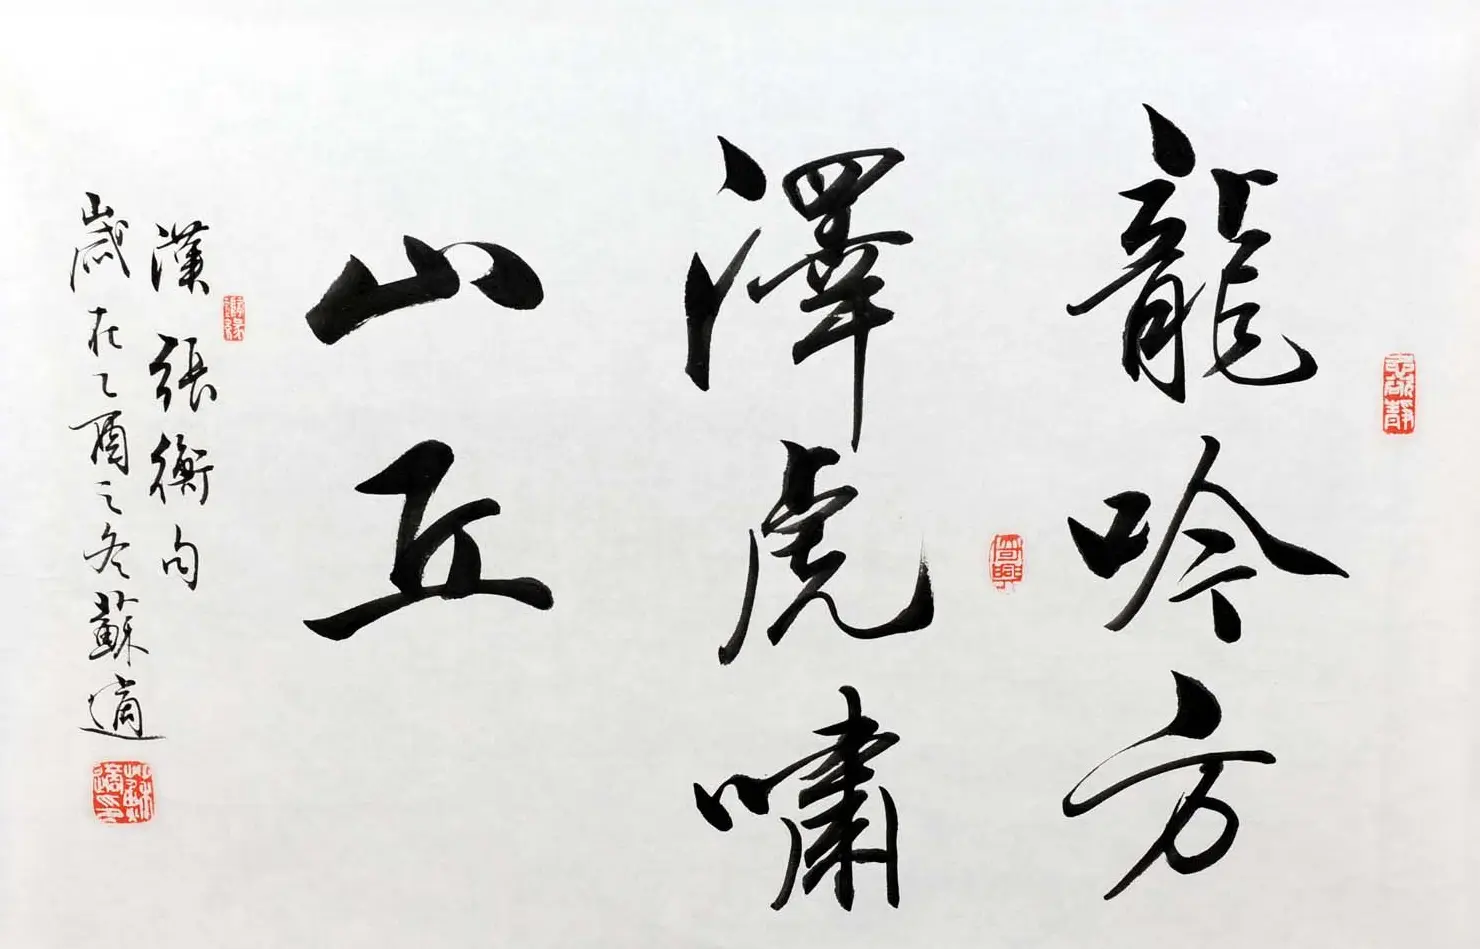 龍吟方
澤虎嘯
山丘
漢張衡句
歲在乙酉之冬蘇適